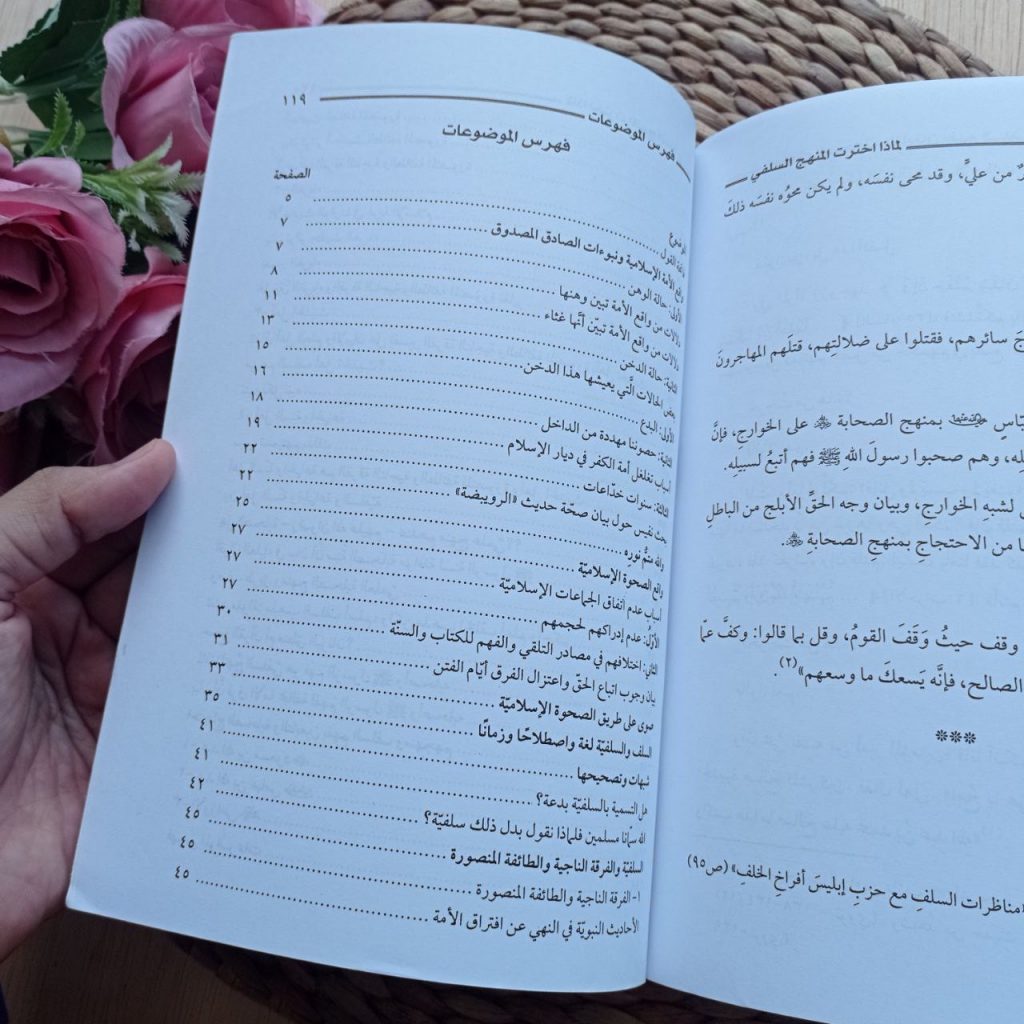 لماذا اخترت المنهج السلفي
من عليٍّ، وقد محى نفسَه، ولم يكن محوُه نفسَه ذلكَ
سائرهم، فقتلوا على ضلالتِهم، قتلَهم المهاجرونَ
بمنهج الصحابة ﷺ على الخوارج، فإنَّ
وهم صحبوا رسولَ اللهِ ﷺ فهم أتبعُ لسبيلِه.
لشبهِ الخوارجِ، وبيان وجه الحقِّ الأبلج من الباطلِ
من الاحتجاجِ بمنهجِ الصحابةِ
وقف حيثُ وَقَفَ القومُ، وقل بما قالوا: وكفَّ عمّا
الصالح، فإنَّه يَسعكَ ما وسعهم»(٢).
***
«مناظرات السلفِ مع حزبِ إبليسَ أفراخِ الخلفِ» (ص٩٥)
فهرس الموضوعات ١١٩
فهرس الموضوعات
الموضوع الصفحة
فاتحة القول ٥
واقع الأمة الإسلامية ونبوءات الصادق المصدوق ٧
الأولى: حالة الوهن ٧
دلالات من واقع الأمة تبين وهنها ٨
دلالات من واقع الأمة تبيّن أنَّها غثاء ١١
الثانية: حالة الدخن ١٣
بعض الحالات الَّتي يعيشها هذا الدخن ١٥
الأولى: البدع ١٦
الثانية: حصوننا مهددة من الداخل ١٨
أسباب تغلغل أمة الكفر في ديار الإسلام ١٩
الثالثة: سنوات خدّاعات ٢٢
بحث نفيس حول بيان صحّة حديث «الرويبضة» ٢٢
والله متمُّ نوره ٢٥
واقع الصحوة الإسلاميّة ٢٧
أسباب عدم اتفاق الجماعات الإسلاميّة ٢٧
الأوّل: عدم إدراكهم لحجمهم ٢٧
الثاني: اختلافهم في مصادر التلقي والفهم للكتاب والسنّة ٣٠
بيان وجوب اتباع الحقّ واعتزال الفرق أيّام الفتن ٣١
صوى على طريق الصحوة الإسلاميّة ٣٣
السلف والسلفيّة لغة واصطلاحًا وزمانًا ٣٥
شبهات وتصحيحها ٤١
هل التسمية بالسلفيّة بدعة؟ ٤١
الله سمّانا مسلمين فلماذا نقول بدل ذلك سلفيّة؟ ٤٢
السلفيّة والفرقة الناجية والطائفة المنصورة ٤٥
١- الفرقة الناجية والطائفة المنصورة ٤٥
الأحاديث النبويّة في النهي عن افتراق الأمة ٤٥